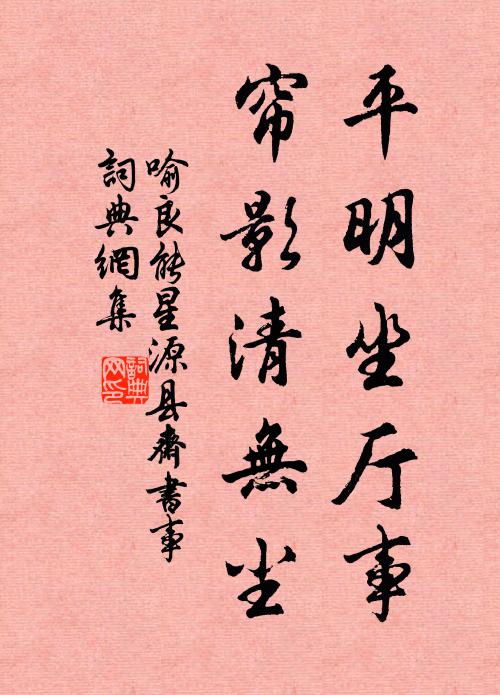 平明坐厅事
帘影清無尘
喻良能星源县斋書事
詞典網集
詞典網印